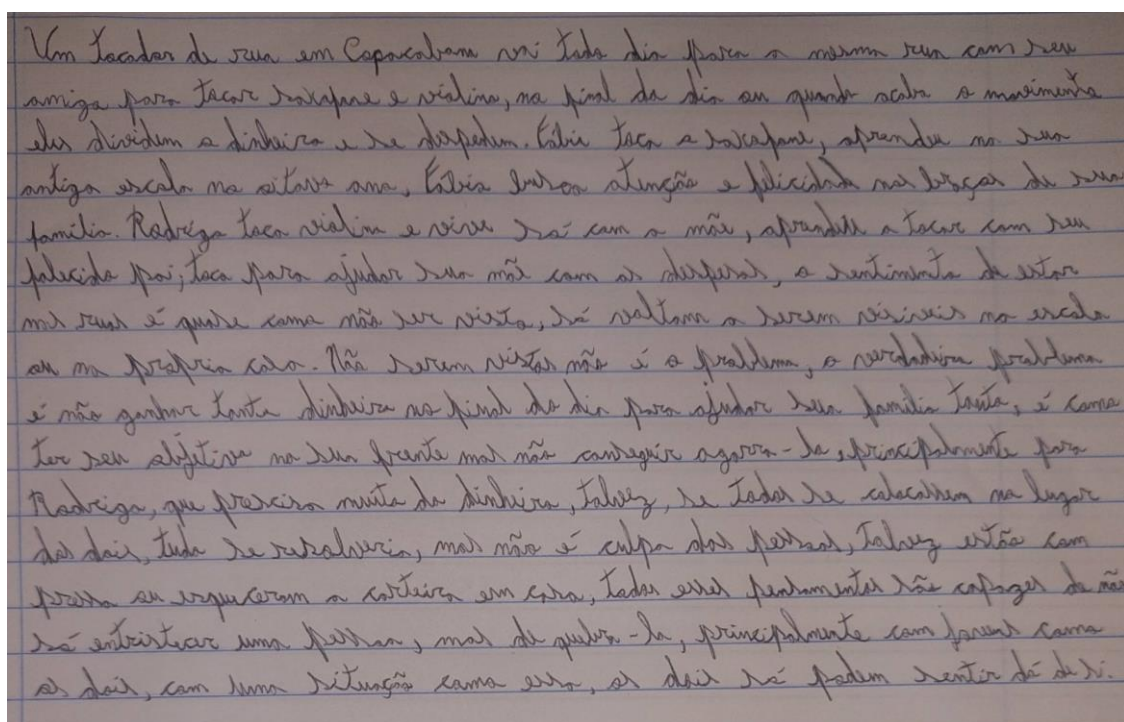 Um tocador de rua em Copacabana vai todo dia para a mesma rua com seu
amigo para tocar saxofone e violino, no final do dia ou quando acaba o movimento
eles dividem o dinheiro e se despedem. Fábio toca o saxofone, aprendeu na sua
antiga escola no oitavo ano, Fábio busca atenção e felicidade nos braços de sua
família. Rodrigo toca violino e vive só com a mãe, aprendeu a tocar com seu
falecido pai; toca para ajudar sua mãe com as despesas, o sentimento de estar
nas ruas é quase como não ser visto, só voltam a serem visíveis na escola
ou na propria casa. Não serem vistos não é o problema, o verdadeiro problema
é não ganhar tanto dinheiro no final do dia para ajudar sua família tanto, é como
ter seu objetivo na sua frente mas não conseguir agarra-lo, principalmente para
Rodrigo, que presciso muito do dinheiro, talvez, se todos se colocassem no lugar
dos dois, tudo se resolveria, mas não é culpa das pessoas, talvez estão com
pressa ou esqueceram a carteira em casa, todos esses pensamentos são capazes de não
só entristecer uma pessoa, mas de quebra-la, principalmente com jovens como
os dois, com uma situação como essa, os dois só podem sentir dó de si.